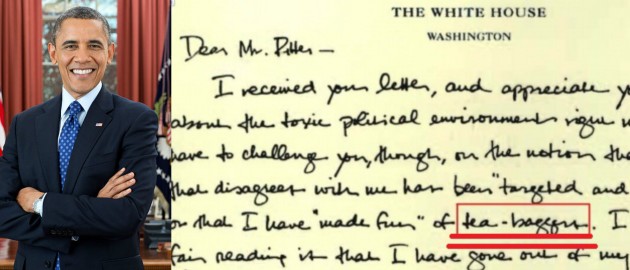 THE WHITE HOUSE
WASHINGTON
Dear Mr. Ritter —
I received your letter, and appreciate
about the toxic political environment right
have to challenge you, though, on the notion
that disagrees with me has been "targeted and
or that I have "made fun" of tea-baggers. I
fair reading is that I have gone out of my